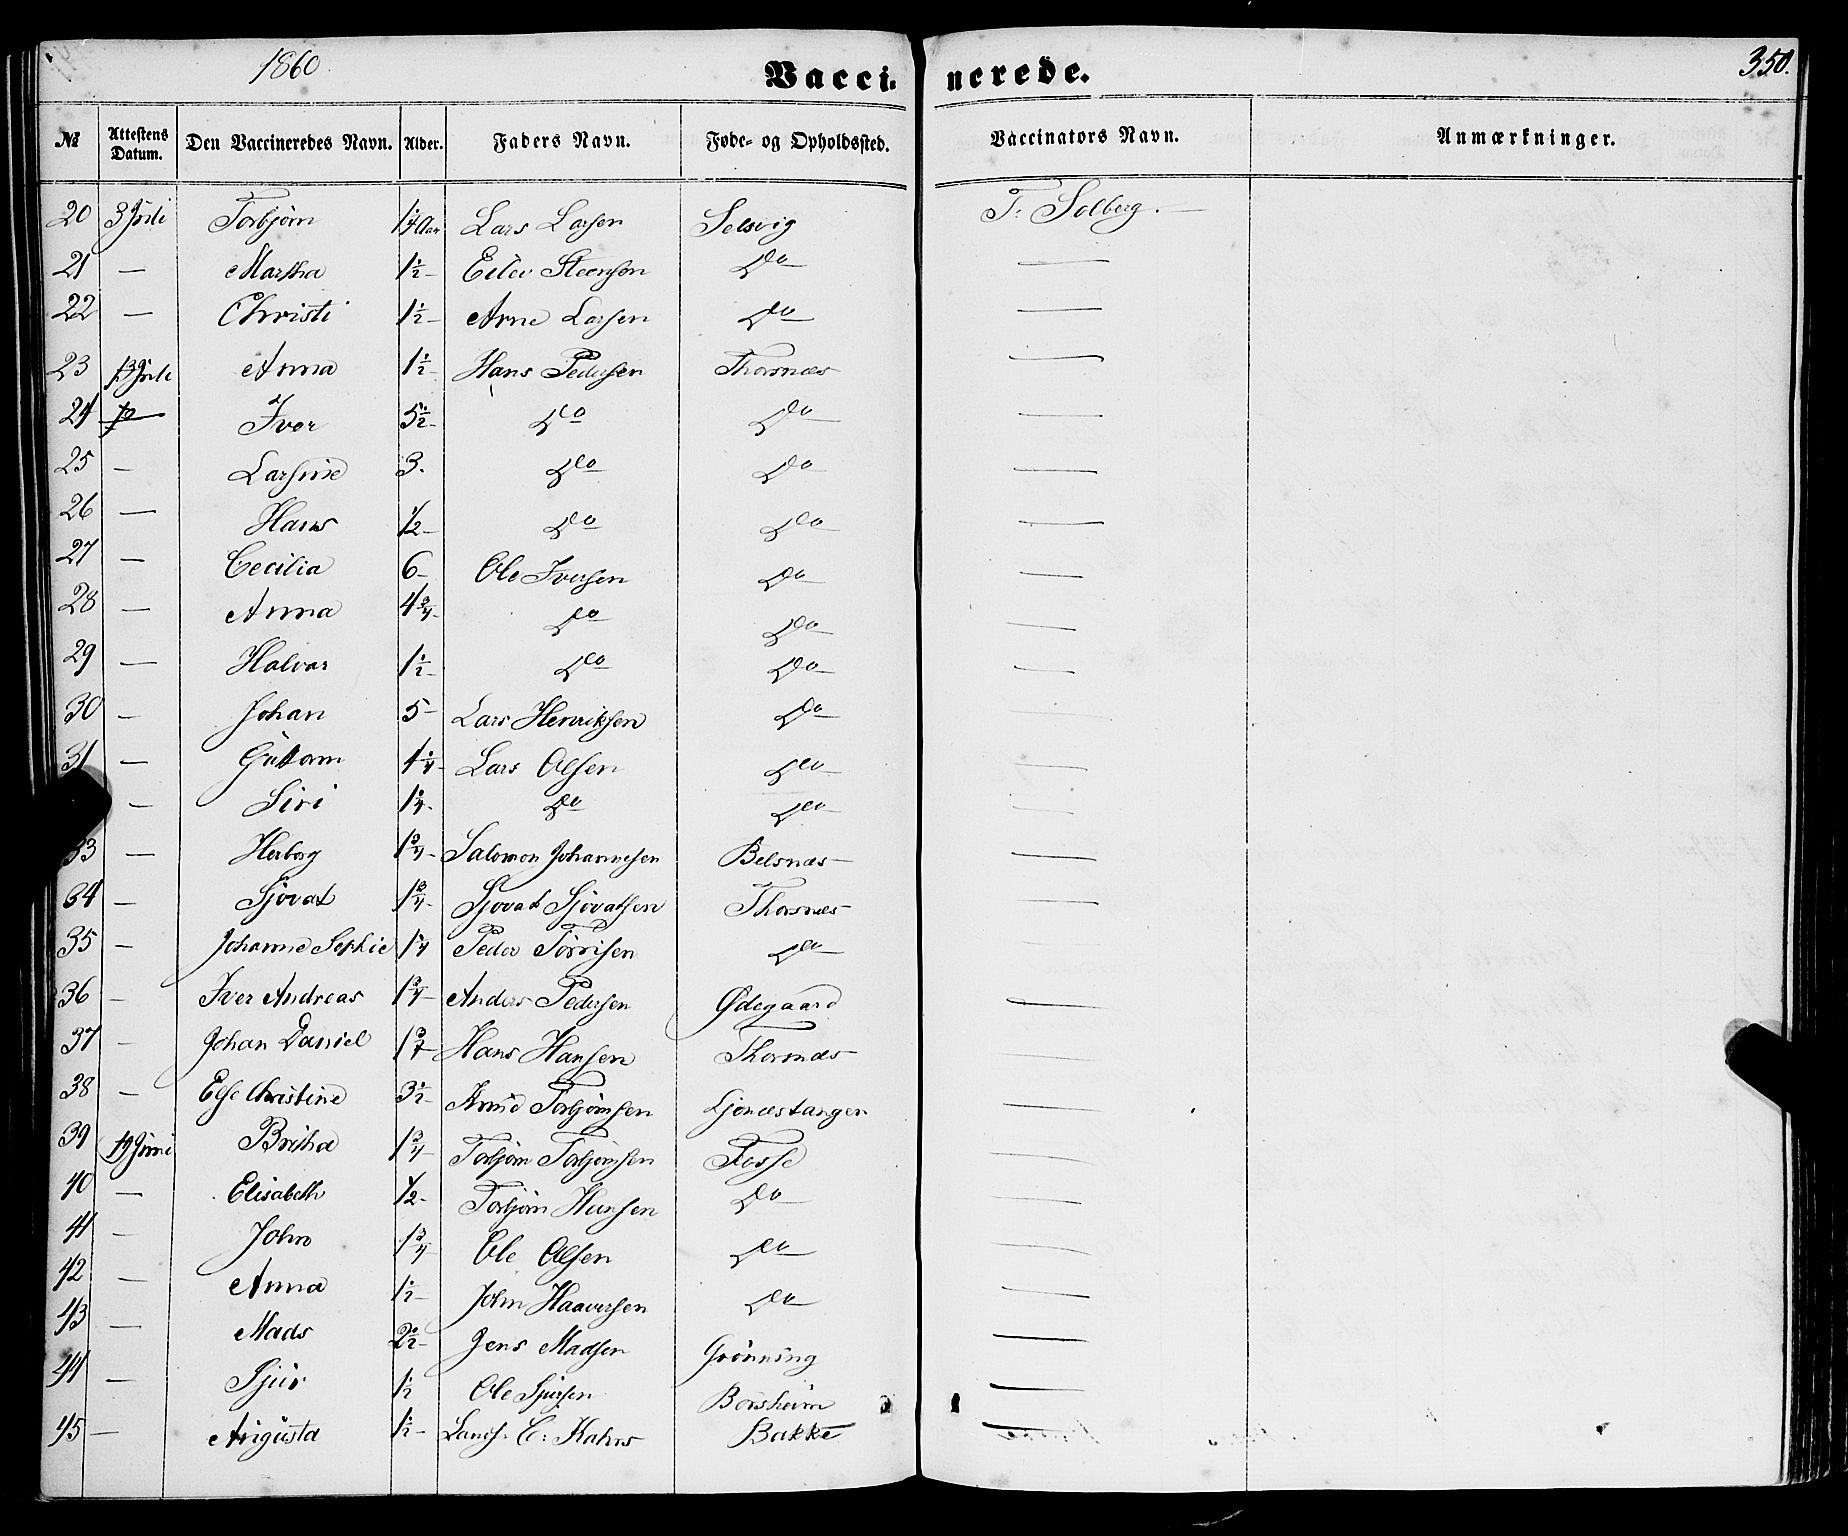 1860 Vaccinerede. 350.
№ Attestens Datum. Den Vaccineredes Navn. Alder. Faders Navn. Føde- og Opholdssted. Vaccinators Navn. Anmærkninger.
20 3 Juli Torbjørn 1¼ Aar Lars Larsen Selsvig T. Solberg. —
21 — Martha 1½ Steensen Do —
22 — Christi 1½ Arne Larsen Do —
23 13 Juli Anna 1½ Hans Pedersen Thorsnæs —
24 — Iver 5½ Do Do —
25 — Larsine 3. Do Do —
26 — Hans ½ Do Do —
27 — Cecilia 6 Ole Iversen Do —
28 — Anna 4¾ Do Do —
29 — Halvar 1½ Do Do —
30 — Johan 5 Lars Henriksen Do —
31 — Guttorm Lars Olsen Do —
— Siri Do Do —
33 — Herborg 1¾ Salomon Johannesen Belsnæs —
34 — Sjovat 1¾ Sjovat Sjovatsen Thorsnæs —
35 — Johanne Sophie 1¼ Peder Torrisen Do —
36 — Iver Andreas 1¾ Anders Pedersen Ødegaard —
37 — Johan Daniel Hans Hansen Thorsnæs —
38 — Else Christine 3½ Torbjørnsen Ljonestangen —
39 19 Juni Britha 1¾ Torbjørn Torbjørnsen Fosse —
40 — Elisabeth ½ Torbjørn Hansen Do —
41 — John 1¾ Ole Olsen Do —
42 — Anna 1½ John Haaversen Do —
43 — Mads 2½ Jens Madsen Grønning —
44 — Sjur ½ Ole Sjursen Borsheim —
45 — Augusta 1½ C: Kahrs Bakke —